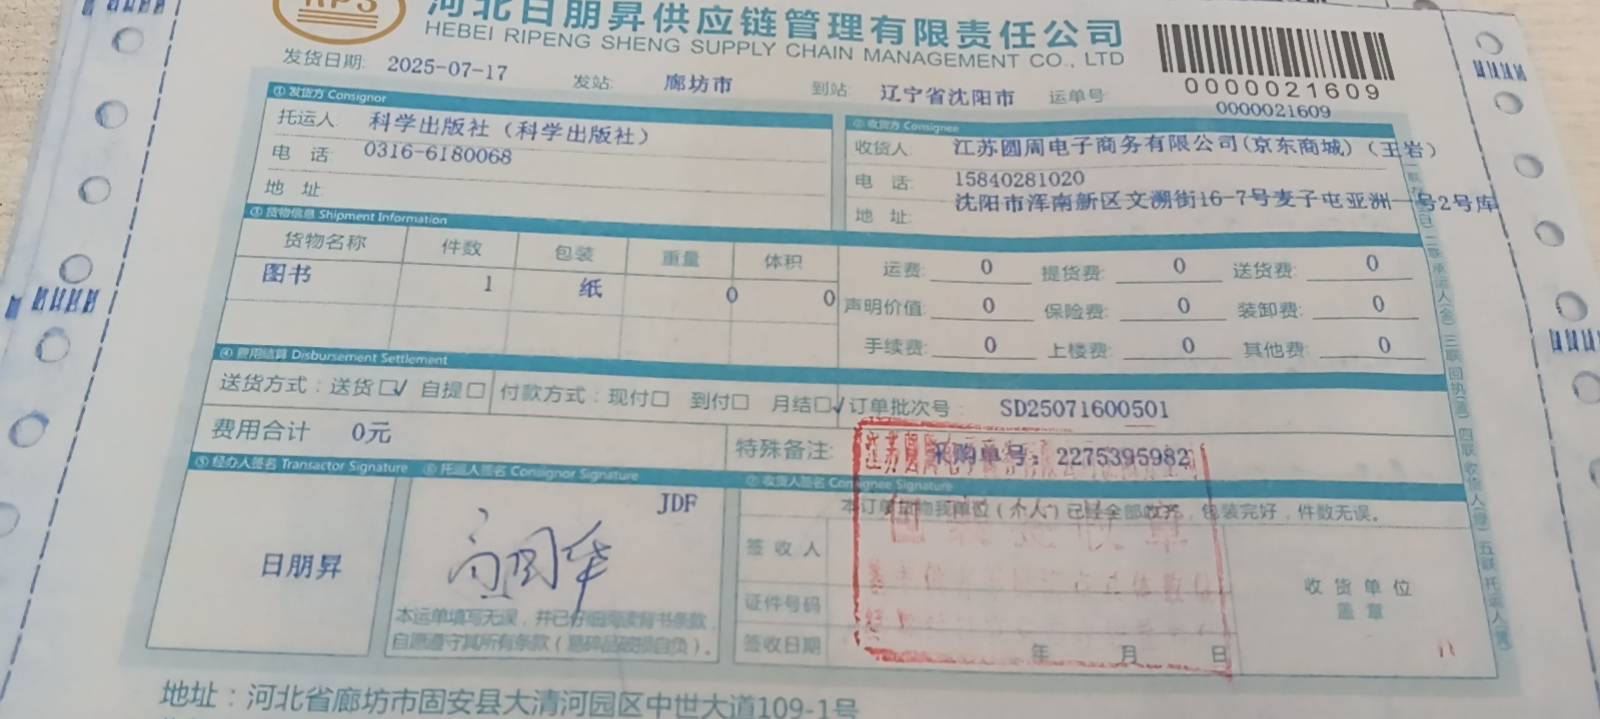 RPS
河北日朋昇供应链管理有限责任公司
HEBEI RIPENG SHENG SUPPLY CHAIN MANAGEMENT CO., LTD
发货日期: 2025-07-17 发站: 廊坊市 到站: 辽宁省沈阳市 运单号:
0000021609
0000021609
① 发货方 Consignor
托运人: 科学出版社（科学出版社）
电 话: 0316-6180068
地 址
② 收货方 Consignee
收货人: 江苏圆周电子商务有限公司(京东商城)（王岩）
电 话: 15840281020
地 址: 沈阳市浑南新区文溯街16-7号麦子屯亚洲一号2号库
③ 货物信息 Shipment Information
货物名称 件数 包装 重量 体积
图书 1 纸 0 0
运费: 0 提货费: 0 送货费: 0
声明价值: 0 保险费: 0 装卸费: 0
手续费: 0 上楼费: 0 其他费: 0
④ 费用结算 Disbursement Settlement
送货方式：送货☐√ 自提☐ 付款方式：现付☐ 到付☐ 月结☐√ 订单批次号: SD25071600501
费用合计 0元 特殊备注: 采购单号：2275395982
⑤ 经办人签名 Transactor Signature
日朋昇
⑥ 托运人签名 Consignor Signature
JDF
本运单填写无误，并已仔细阅读背书条款，
自愿遵守其所有条款（易碎品破损自负）。
⑦ 收货人签名 Consignee Signature
本订单货物我单位（个人）已经全部收齐，包装完好，件数无误。
签 收 人
证件号码
签收日期 年 月 日
收 货 单 位
盖 章
地址：河北省廊坊市固安县大清河园区中世大道109-1号